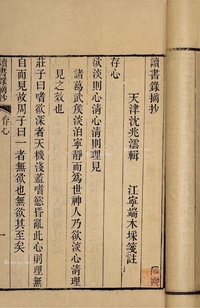 讀書錄摘抄
天津沈兆澐輯　江寧端木埰箋註
存心
欲淡則心清心清則理見
諸葛武矦淡泊寧靜而為世神人乃欲淡心清理
見之效也
莊子曰嗜欲深者天機淺蓋嗜慾昏亂此心則理無
自而見故周子曰一者無欲也無欲其至矣
讀書錄摘抄
存心
一